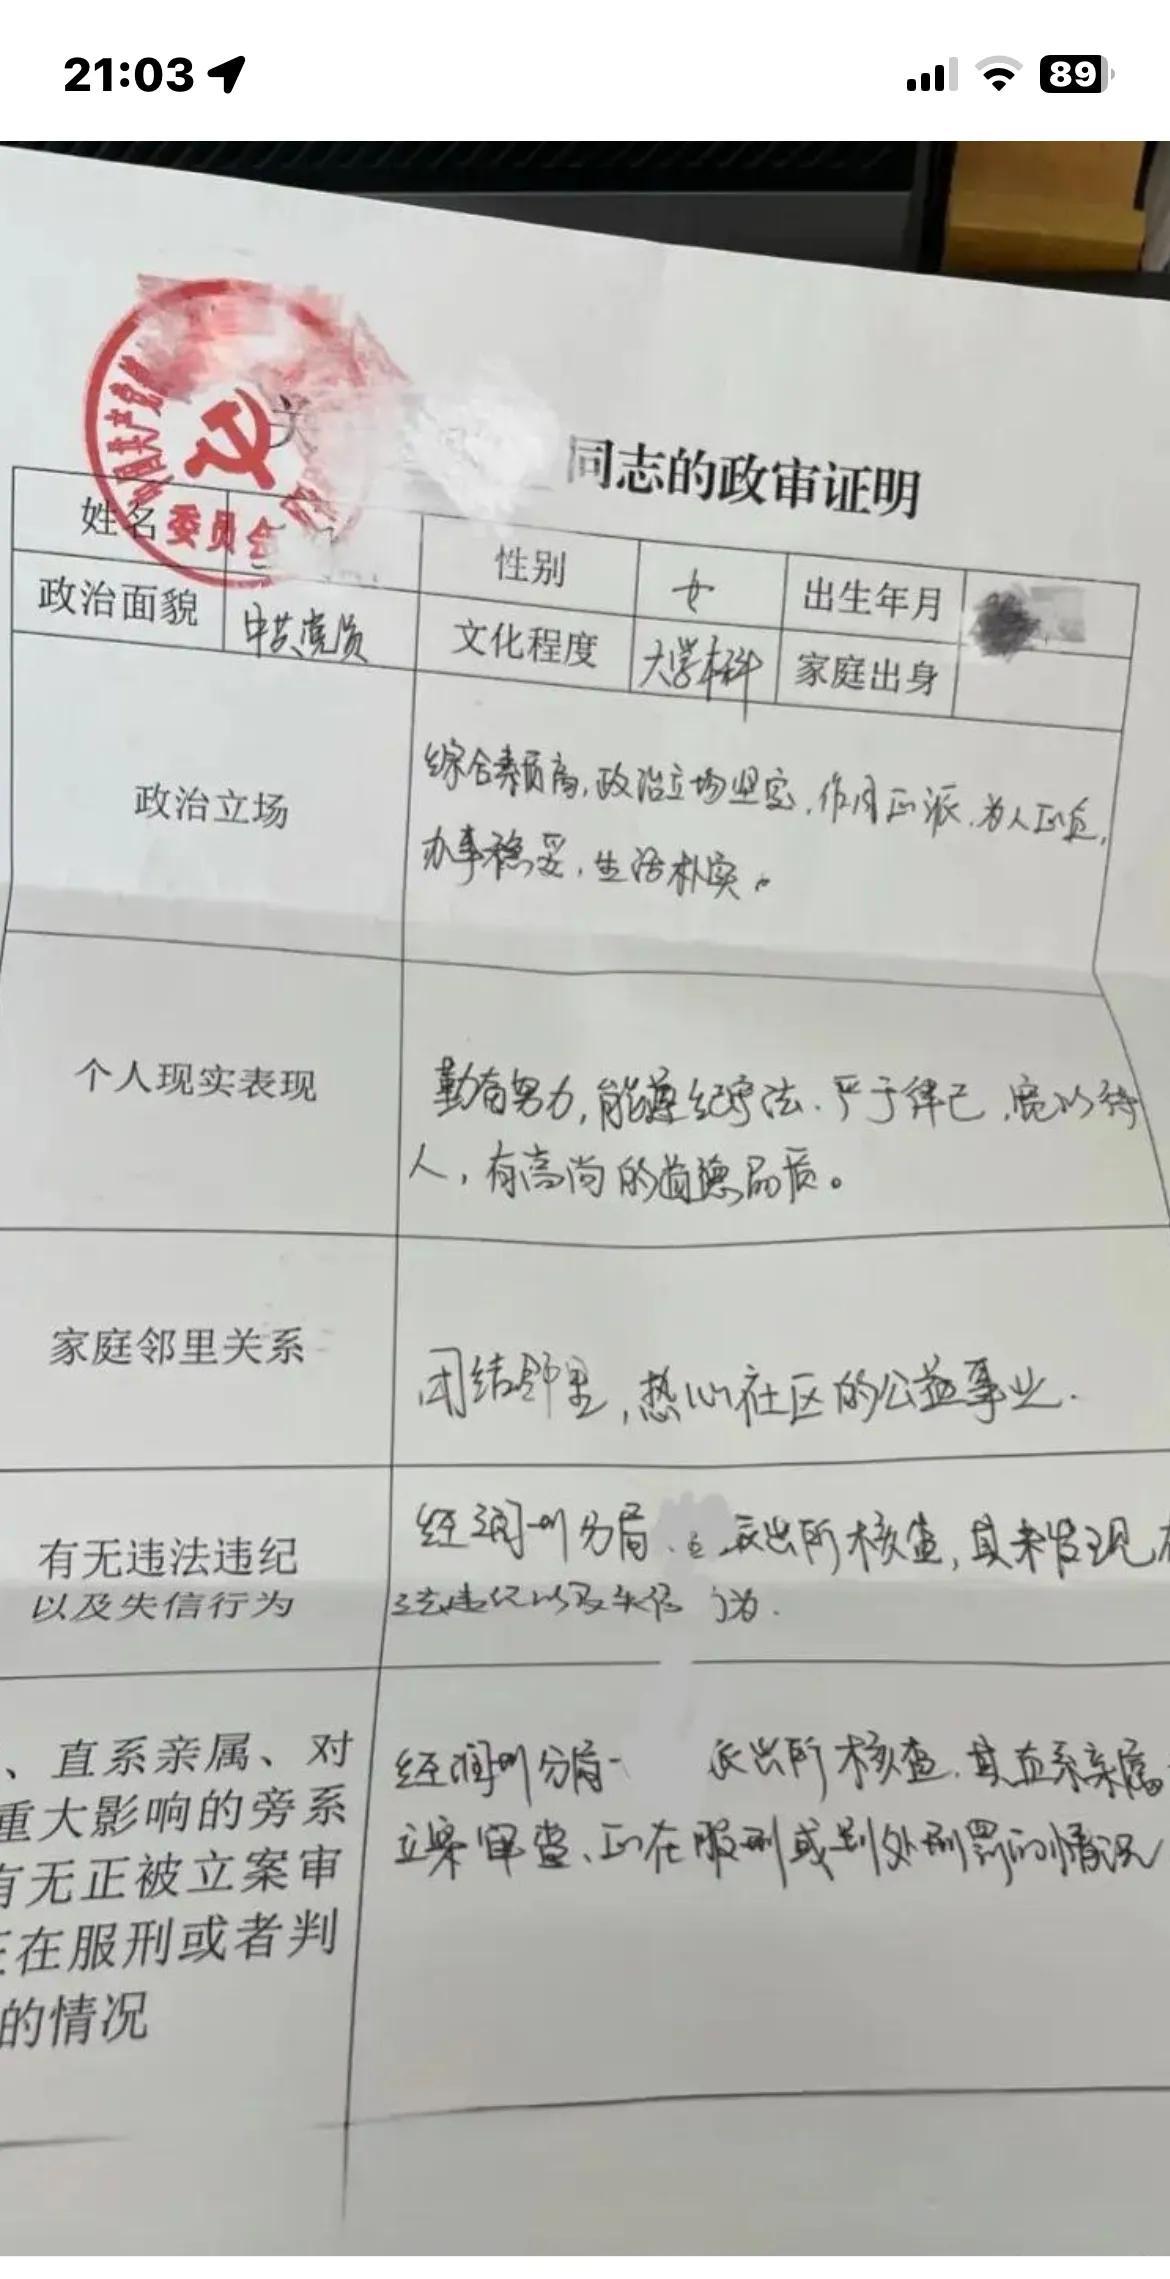 21:03
89
中国共产党
委员会
关
同志的政审证明
姓名 性别 女 出生年月
政治面貌 中共党员 文化程度 大学本科 家庭出身
政治立场
综合素质高,政治立场坚定,作风正派,为人正直,
办事稳妥,生活朴实。
个人现实表现
勤奋努力,能遵纪守法、严于律己,宽以待
人,有高尚的道德品质。
家庭邻里关系
团结邻里,热心社区的公益事业.
有无违法违纪
以及失信行为
经润州分局 派出所核查,其未发现
法违纪以及失信 为.
、直系亲属、对
重大影响的旁系
有无正被立案审
正在服刑或者判
的情况
经润州分局 派出所核查,其直系亲属
立案审查、正在服刑或判处刑罚的情况